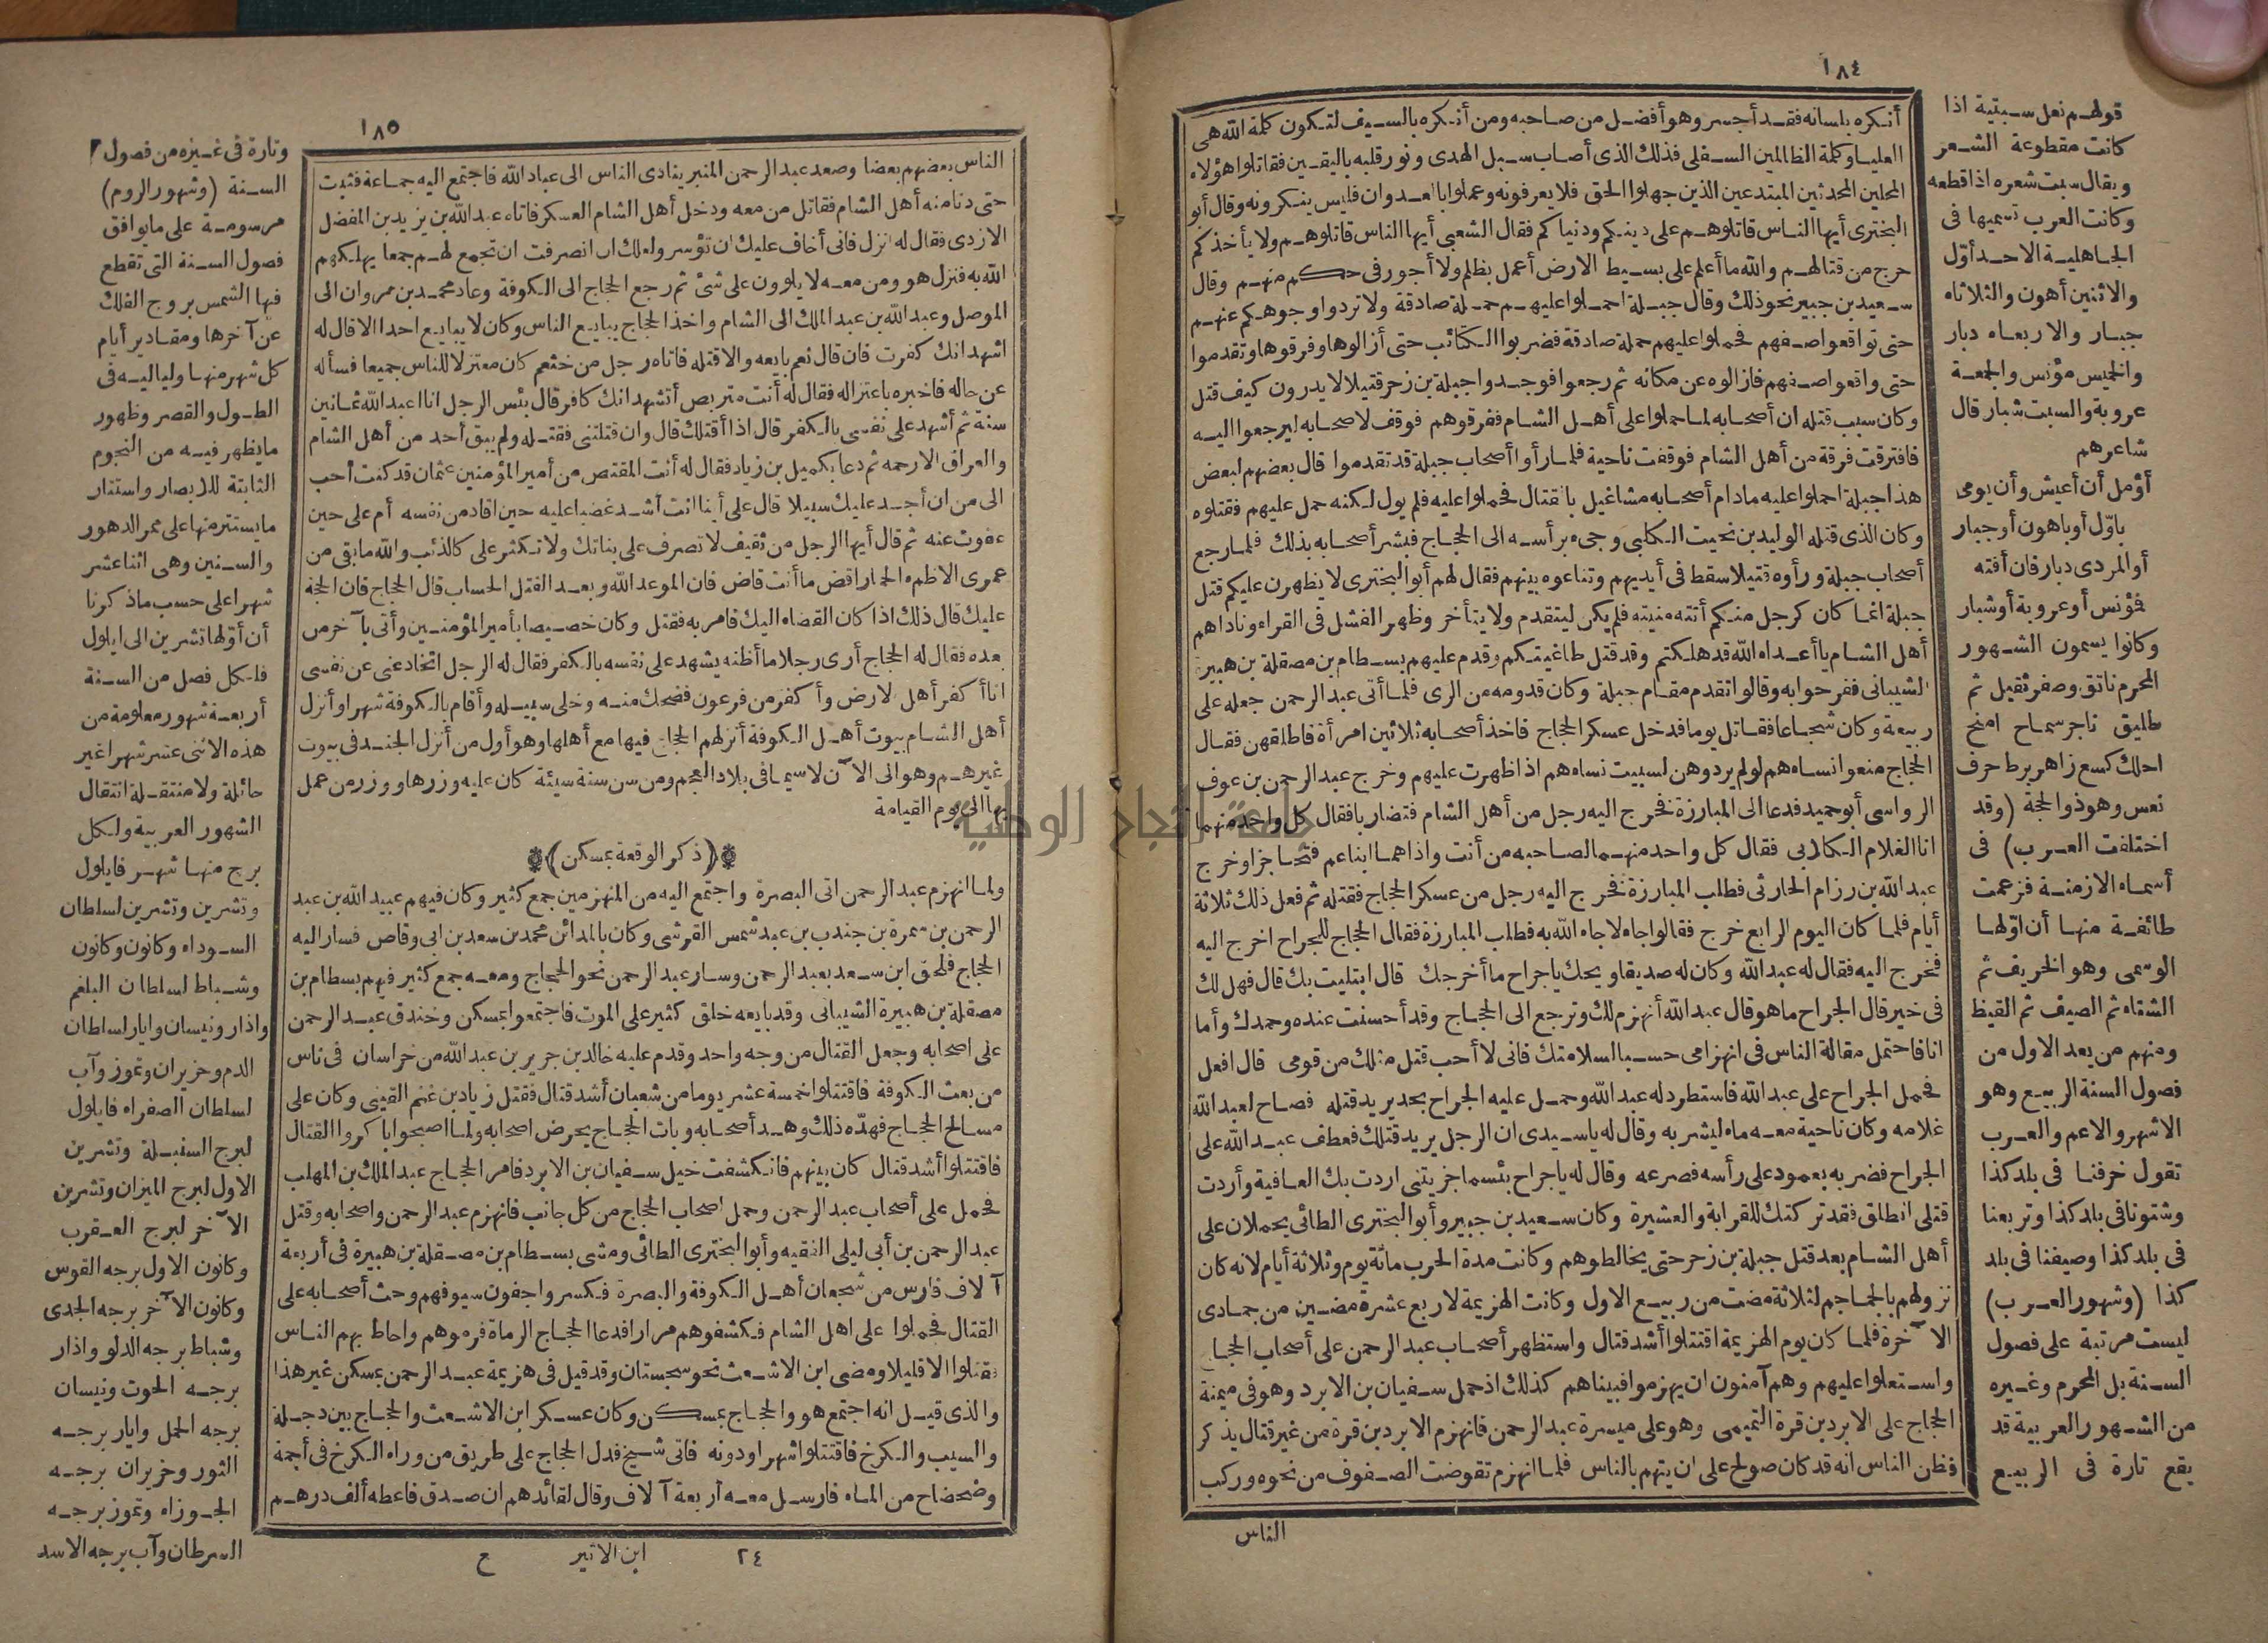 ١٨٤
أنكره بلسانه فقد أجر وهو أفضل من صاحبه ومن أنكره بالسيف لتكون كلمة الله هي
العليا وكلمة الظالمين السفلى فذلك الذي أصاب سبيل الهدى ونور قلبه باليقين فقاتلوا هؤلاء
المحلين المحدثين المبتدعين الذين جهلوا الحق فلا يعرفونه وعملوا بالعدوان فليس ينكرونه وقال أبو
البختري أيها الناس قاتلوهم على دينكم ودنياكم فقال الشعبي أيها الناس قاتلوهم ولا يأخذكم
حرج من قتالهم والله ما أعلم على بسيط الارض أعمل بظلم ولا أجور في حكم منهم وقال
سعيد بن جبير نحو ذلك وقال جبلة احملوا عليهم حملة صادقة ولا تردوا وجوهكم عنهم
حتى تواقعوا صفهم فحملوا عليهم حملة صادقة فضربوا الكتائب حتى أزالوها وفرقوها وتقدموا
حتى واقعوا صفهم فازالوه عن مكانه ثم رجعوا فوجدوا جبلة بن زحر قتيلا لا يدرون كيف قتل
وكان سبب قتله أن أصحابه لما حملوا على أهل الشام ففرقوهم فوقف لاصحابه ليرجعوا اليه
فافترقت فرقة من أهل الشام فوقفت ناحية فلما رأوا أصحاب جبلة قد تقدموا قال بعضهم لبعض
هذا جبلة احملوا عليه مادام أصحابه مشاغيل بالقتال فحملوا عليه فلم يول لكنه حمل عليهم فقتلوه
وكان الذي قتله الوليد بن نحيت الكلبي وجيء برأسه الى الحجاج فبشر أصحابه بذلك فلما رجع
أصحاب جبلة ورأوه قتيلا سقط في أيديهم وتناعوه بينهم فقال لهم أبو البختري لا يظهرن عليكم قتل
جبلة انما كان كرجل منكم أتته منيته فلم يكن ليتقدم ولا يتأخر وظهر الفشل في القراء وناداهم
أهل الشام يا أعداء الله قد هلكتم وقد قتل طاغيتكم وقدم عليهم بسطام بن مصقلة بن هبيرة
الشيباني ففرحوا به وقالوا تقدم مقام جبلة وكان قدومه من الري فلما أتى عبد الرحمن جعله على
ربيعة وكان شجاعا فقاتل يوما فدخل عسكر الحجاج فاخذ أصحابه ثلاثين امرأة فاطلقهن فقال
الحجاج منعوا نساءهم لو لم يردوهن لسبيت نساءهم اذا ظهرت عليهم وخرج عبد الرحمن بن عوف
الرواسي أبو حميد فدعا الى المبارزة فخرج اليه رجل من أهل الشام فتضاربا فقال كل واحد منهما
انا الغلام الكلابي فقال كل واحد منهما لصاحبه من أنت واذا هما ابنا عم فتحاجزا وخرج
عبد الله بن رزام الحارثي فطلب المبارزة فخرج اليه رجل من عسكر الحجاج فقتله ثم فعل ذلك ثلاثة
أيام فلما كان اليوم الرابع خرج فقالوا جاء لا جاء الله به فطلب المبارزة فقال الحجاج للجراح اخرج اليه
فخرج اليه فقال له عبد الله وكان له صديقا ويحك يا جراح ما أخرجك قال ابتليت بك قال فهل لك
في خير قال الجراح ما هو قال عبد الله أنهزم لك وترجع الى الحجاج وقد أحسنت عنده وحمدك وأما
انا فاحتمل مقالة الناس في انهزامي حسبا لسلامتك فاني لا أحب قتل مثلك من قومي قال افعل
فحمل الجراح على عبد الله فاستطرد له عبد الله وحمل عليه الجراح بجد يريد قتله فصاح لعبد الله
غلامه وكان ناحية معه ماء ليشربه وقال له يا سيدي ان الرجل يريد قتلك فعطف عبد الله على
الجراح فضربه بعمود على رأسه فصرعه وقال له يا جراح بئسما جزيتني اردت بك العافية وأردت
قتلي انطلق فقد تركتك للقرابة والعشيرة وكان سعيد بن جبير وأبو البختري الطائي يحملان على
أهل الشام بعد قتل جبلة بن زحر حتى يخالطوهم وكانت مدة الحرب مائة يوم وثلاثة أيام لانه كان
نزولهم بالجماجم لثلاثة مضت من ربيع الاول وكانت الهزيمة لاربع عشرة مضين من جمادى
الآخرة فلما كان يوم الهزيمة اقتتلوا أشد قتال واستظهر أصحاب عبد الرحمن على أصحاب الحجاج
واستعلوا عليهم وهم آمنون ان يهزموا فبيناهم كذلك اذ حمل سفيان بن الابرد وهو في ميمنة
الحجاج على الابرد بن قرة التميمي وهو على ميسرة عبد الرحمن فانهزم الابرد بن قرة من غير قتال يذكر
فظن الناس انه قد كان صولح على ان ينهزم بالناس فلما انهزم تقوضت الصفوف من نحوه وركب
الناس
قولهم نعل سبتية اذا
كانت مقطوعة الشعر
ويقال سبت شعره اذا قطعه
وكانت العرب تسميها في
الجاهلية الاحد أول
والاثنين أهون والثلاثاء
جبار والاربعاء دبار
والخميس مؤنس والجمعة
عروبة والسبت شبار قال
شاعرهم
أؤمل أن أعيش وأن يومي
باول أو باهون أو جبار
أو المردي دبار فان أفته
فمؤنس أو عروبة أو شبار
وكانوا يسمون الشهور
المحرم ناتق وصفر ثقيل ثم
طليق ناجر سماح امنح
احلك كسع زاهر برط حرف
نعس وهو ذو الحجة (وقد
اختلفت العرب) في
أسماء الازمنة فزعمت
طائفة منها أن اولها
الوسمي وهو الخريف ثم
الشتاء ثم الصيف ثم القيظ
ومنهم من يعد الاول من
فصول السنة الربيع وهو
الاشهر والاعم والعرب
تقول خرفنا في بلد كذا
وشتونا في بلد كذا وتربعنا
في بلد كذا وصيفنا في بلد
كذا (وشهور العرب)
ليست مرتبة على فصول
السنة بل المحرم وغيره
من الشهور العربية قد
يقع تارة في الربيع
١٨٥
الناس بعضهم بعضا وصعد عبد الرحمن المنبر ينادي الناس الى عباد الله فاجتمع اليه جماعة فثبت
حتى دنا منه أهل الشام فقاتل من معه ودخل أهل الشام العسكر فاتاه عبد الله بن يزيد بن المفضل
الازدي فقال له انزل فاني أخاف عليك ان تؤسر ولعلك ان انصرفت ان تجمع لهم جمعا يهلكهم
الله به فنزل هو ومن معه لا يلوون على شيء ثم رجع الحجاج الى الكوفة وعاد محمد بن مروان الى
الموصل وعبد الله بن عبد الملك الى الشام واخذ الحجاج يبايع الناس وكان لا يبايع احدا الا قال له
اشهد انك كفرت فان قال نعم بايعه والا قتله فاتاه رجل من خثعم كان معتزلا للناس جميعا فسأله
عن حاله فاخبره باعتزاله فقال له أنت متربص أتشهد انك كافر قال بئس الرجل انا اعبد الله ثمانين
سنة ثم أشهد على نفسي بالكفر قال اذا أقتلك قال وان قتلتني فقتله ولم يبق أحد من أهل الشام
والعراق الا رحمه ثم دعا بكميل بن زياد فقال له أنت المقتص من أمير المؤمنين عثمان قد كنت أحب
الى من ان أجد عليك سبيلا قال على أينا انت أشد غضبا عليه حين اقاد من نفسه أم على حين
عفوت عنه ثم قال أيها الرجل من ثقيف لا تصرف على بنابك ولا تكثر على كالذئب والله ما بقي من
عمري الا ظمء الحمار اقض ما أنت قاض فان الموعد الله وبعد القتل الحساب قال الحجاج فان الحجة
عليك قال ذلك اذا كان القضاء اليك فامر به فقتل وكان خصيصا بأمير المؤمنين وأتى بآخر من
بعده فقال له الحجاج أرى رجلا ما أظنه يشهد على نفسه بالكفر فقال له الرجل اتخادعني عن نفسي
انا أكفر أهل الارض وأكفر من فرعون فضحك منه وخلى سبيله وأقام بالكوفة شهرا وأنزل
أهل الشام بيوت أهل الكوفة أنزلهم الحجاج فيها مع أهلها وهو أول من أنزل الجند في بيوت
غيرهم وهو الى الآن لا سيما في بلاد العجم ومن سن سنة سيئة كان عليه وزرها ووزر من عمل
بها الى يوم القيامة
(ذكر الوقعة بمسكن)
ولما انهزم عبد الرحمن اتى البصرة واجتمع اليه من المنهزمين جمع كثير وكان فيهم عبيد الله بن عبد
الرحمن بن سمرة بن جندب بن عبد شمس القرشي وكان بالمدائن محمد بن سعد بن ابي وقاص فسار اليه
الحجاج فلحق ابن سعد بعبد الرحمن وسار عبد الرحمن نحو الحجاج ومعه جمع كثير فيهم بسطام بن
مصقلة بن هبيرة الشيباني وقد بايعه خلق كثير على الموت فاجتمعوا بمسكن وخندق عبد الرحمن
على اصحابه وجعل القتال من وجه واحد وقدم عليه خالد بن جرير بن عبد الله من خراسان في ناس
من بعث الكوفة فاقتتلوا خمسة عشر يوما من شعبان أشد قتال فقتل زياد بن غنم القيني وكان على
مسالح الحجاج فهده ذلك وهد أصحابه وبات الحجاج يحرض اصحابه ولما اصبحوا باكروا القتال
فاقتتلوا أشد قتال كان بينهم فانكشفت خيل سفيان بن الابرد فامر الحجاج عبد الملك بن المهلب
فحمل على أصحاب عبد الرحمن وحمل اصحاب الحجاج من كل جانب فانهزم عبد الرحمن واصحابه وقتل
عبد الرحمن بن أبي ليلى الفقيه وأبو البختري الطائي ومشى بسطام بن مصقلة بن هبيرة في أربعة
آلاف فارس من شجعان أهل الكوفة والبصرة فكسروا جفون سيوفهم وحث أصحابه على
القتال فحملوا على اهل الشام فكشفوهم مرارا فدعا الحجاج الرماة فرموهم واحاط بهم الناس
فقتلوا الا قليلا ومضى ابن الاشعث نحو سجستان وقد قيل في هزيمة عبد الرحمن بمسكن غير هذا
والذي قيل انه اجتمع هو والحجاج بمسكن وكان عسكر ابن الاشعث والحجاج بين دجلة
والسيب والكرخ فاقتتلوا شهرا ودونه فاتى شيخ فدل الحجاج على طريق من وراء الكرخ في أجمة
وضحضاح من الماء فارسل معه أربعة آلاف وقال لقائدهم ان صدق فاعطه ألف درهم
٢٤
ابن الاثير
ع
وتارة في غيره من فصول
السنة (وشهور الروم)
مرسومة على ما يوافق
فصول السنة التي تقطع
فيها الشمس بروج الفلك
عن آخرها ومقادير أيام
كل شهر منها ولياليه في
الطول والقصر وظهور
ما يظهر فيه من النجوم
الثابتة للابصار واستتار
ما يستتر منها على ممر الدهور
والسنين وهي اثنا عشر
شهرا على حسب ما ذكرنا
أن أولها تشرين الى ايلول
فلكل فصل من السنة
أربعة شهور معلومة من
هذه الاثنى عشر شهرا غير
حائلة ولا منتقلة انتقال
الشهور العربية ولكل
برج منها شهر فايلول
وتشرين وتشرين لسلطان
السوداء وكانون وكانون
وشباط لسلطان البلغم
واذار ونيسان وايار لسلطان
الدم وحزيران وتموز وآب
لسلطان الصفراء فايلول
لبرج السنبلة وتشرين
الاول لبرج الميزان وتشرين
الآخر لبرج العقرب
وكانون الاول برجه القوس
وكانون الآخر برجه الجدى
وشباط برجه الدلو واذار
برجه الحوت ونيسان
برجه الحمل وايار برجه
الثور وحزيران برجه
الجوزاء وتموز برجه
السرطان وآب برجه الاسد
جامعة النجاح الوطنية